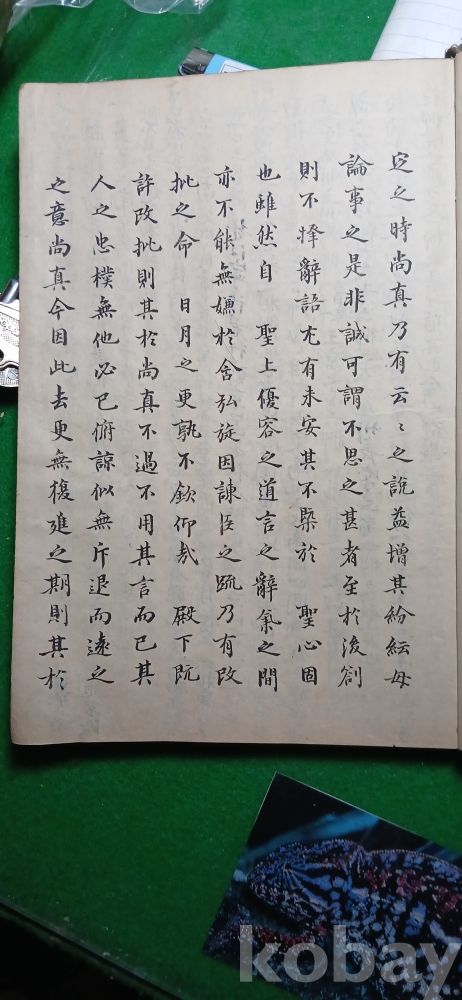 定之時尚真乃有云〻之說益增其紛紜毋
論事之是非誠可謂不思之甚者至於後劄
則不擇辭語尤有未安其不槩於 聖心固
也雖然自 聖上優容之道言之辭氣之間
亦不能無嫌於含弘旋因諫臣之疏乃有改
批之命 日月之更孰不欽仰哉 殿下旣
許改批則其於尚真不過不用其言而已其
人之忠樸無他必已俯諒似無斥退而遠之
之意尚真今因此去更無復進之期則其於
kobay